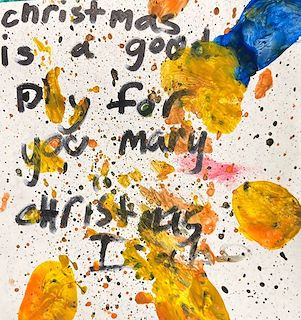 christmas
is a good
Ply for
you mary
christmas
I